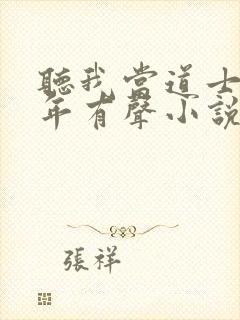 聽我當道士
年有聲小說
張祥